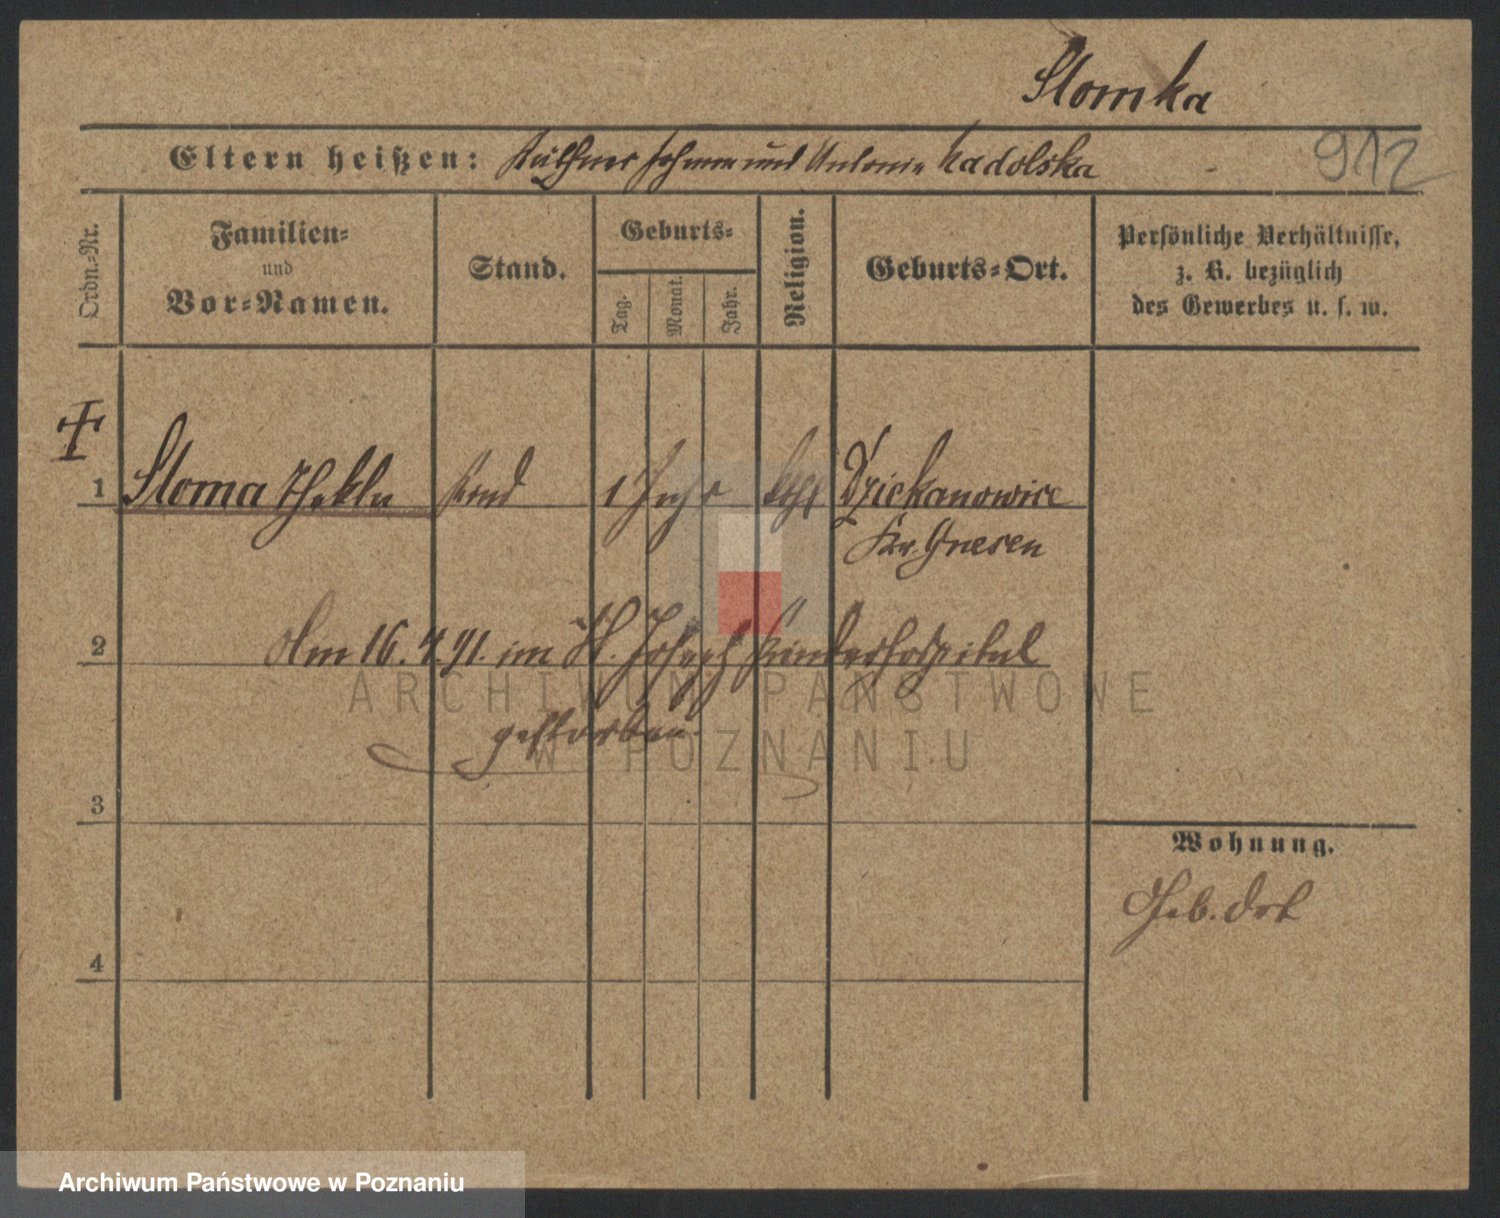 Slomka
912
Eltern heißen: Johann und Antonie Kadolska
Ordn.-Nr.
Familien-
und
Vor-Namen.
Stand.
Geburts-
Tag.
Monat.
Jahr.
Religion.
Geburts-Ort.
Persönliche Verhältnisse,
z. B. bezüglich
des Gewerbes u. s. w.
1 Sloma Thekla Kind 1 Jahr kath Dziekanowice
Kr. Gnesen
2 Am 16. 4. 91. im St. Joseph Kinderhospital
gestorben.
3
4
Wohnung.
Geb. Ort
ARCHIWUM PAŃSTWOWE
W POZNANIU
Archiwum Państwowe w Poznaniu